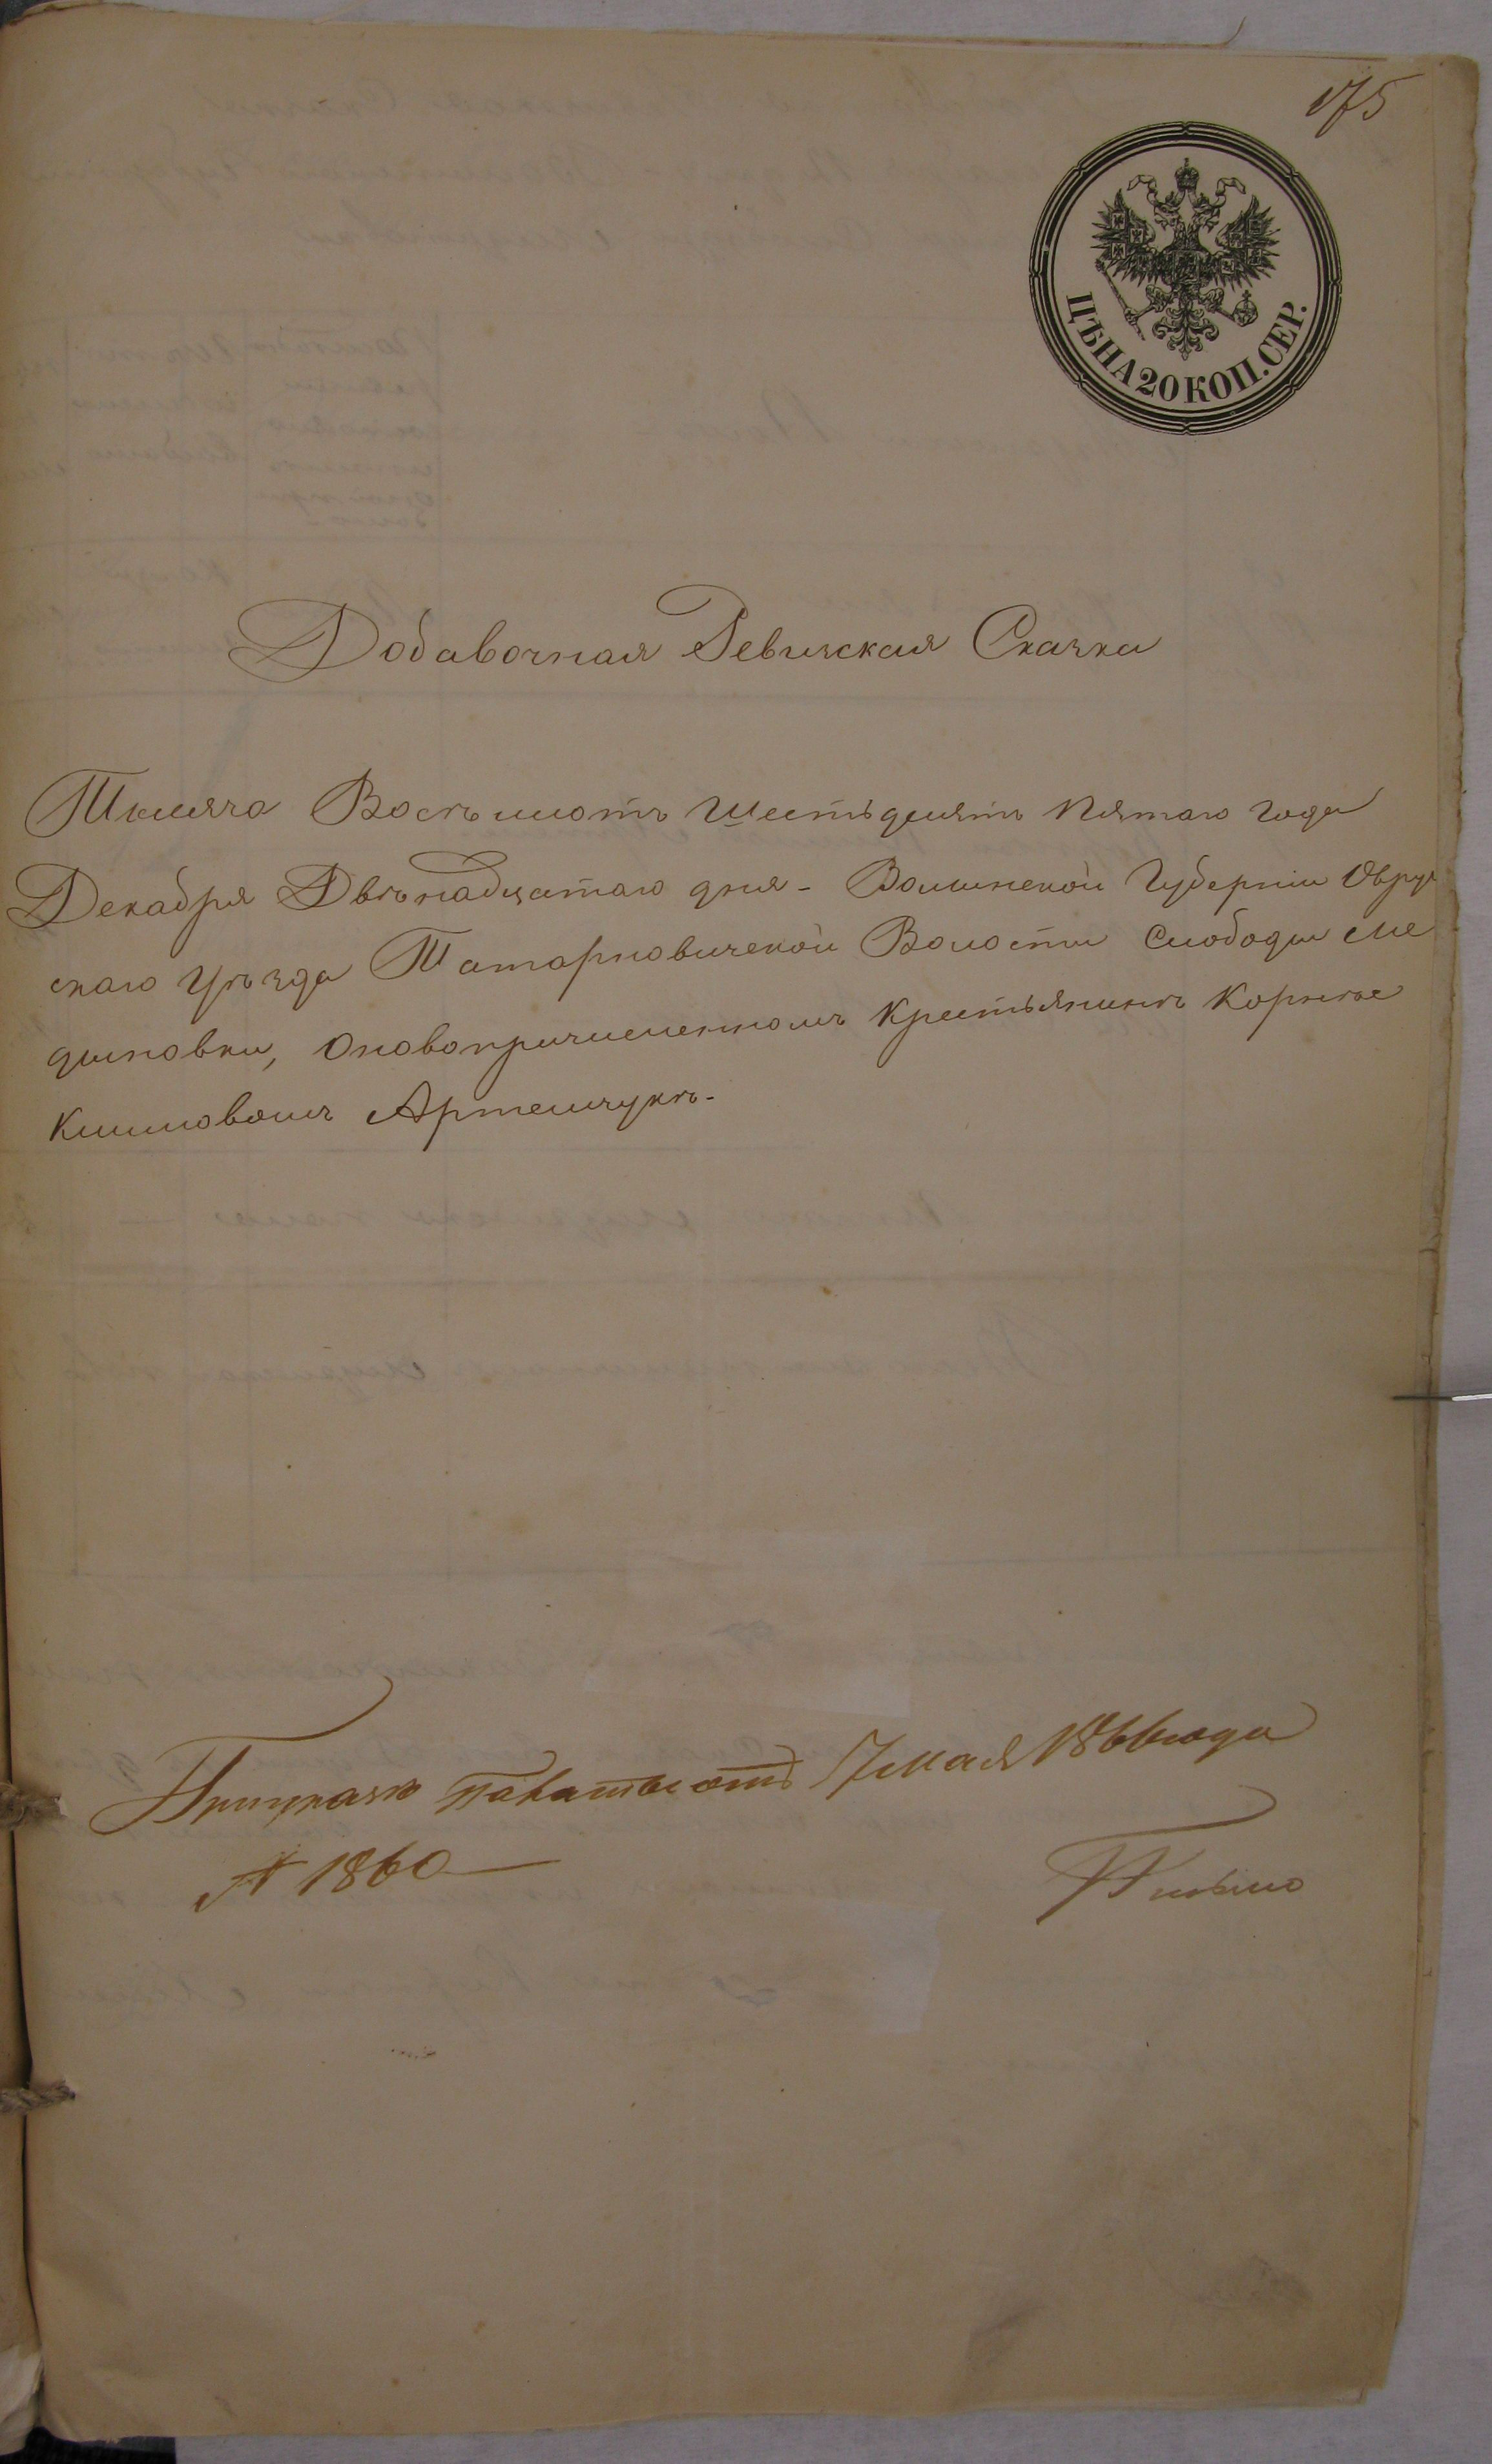 175
ЦѢНА 20 КОП. СЕР.
Добавочная Ревизская Сказка
Тысяча Восемьсотъ шестьдесятъ пятаго года
Декабря Двѣнадцатаго дня - Волынской Губерніи Овруч
скаго Уѣзда Татарновичской Волости Слободы Ме
дыновки, оновопричисленномъ крестьянинѣ Корнѣе
Климовомъ Артемчукѣ.
При указѣ палаты отъ 17 мая 1866 года
№ 1860